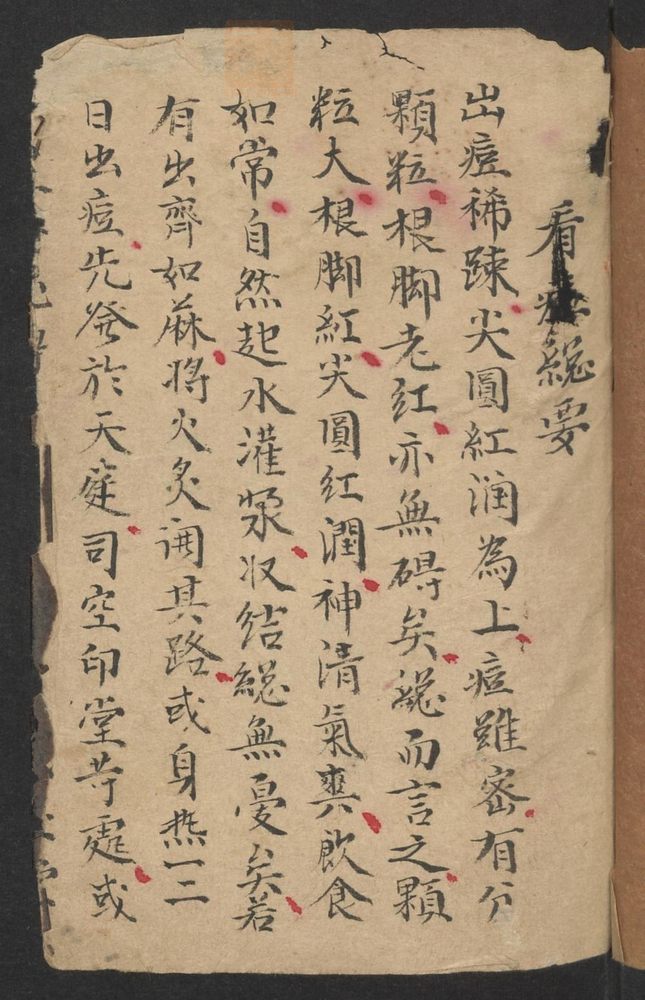 看痘緫要
出痘稀踈尖圓紅润為上痘雖密有分
顆粒根脚老红亦無碍矣緫而言之顆
粒大根脚紅尖圓红潤神清氣爽飲食
如常自然起水灌漿收结緫無憂矣若
有出齊如蔴将火炙開其路或身热一二
日出痘先發於天庭司空印堂䒭處或